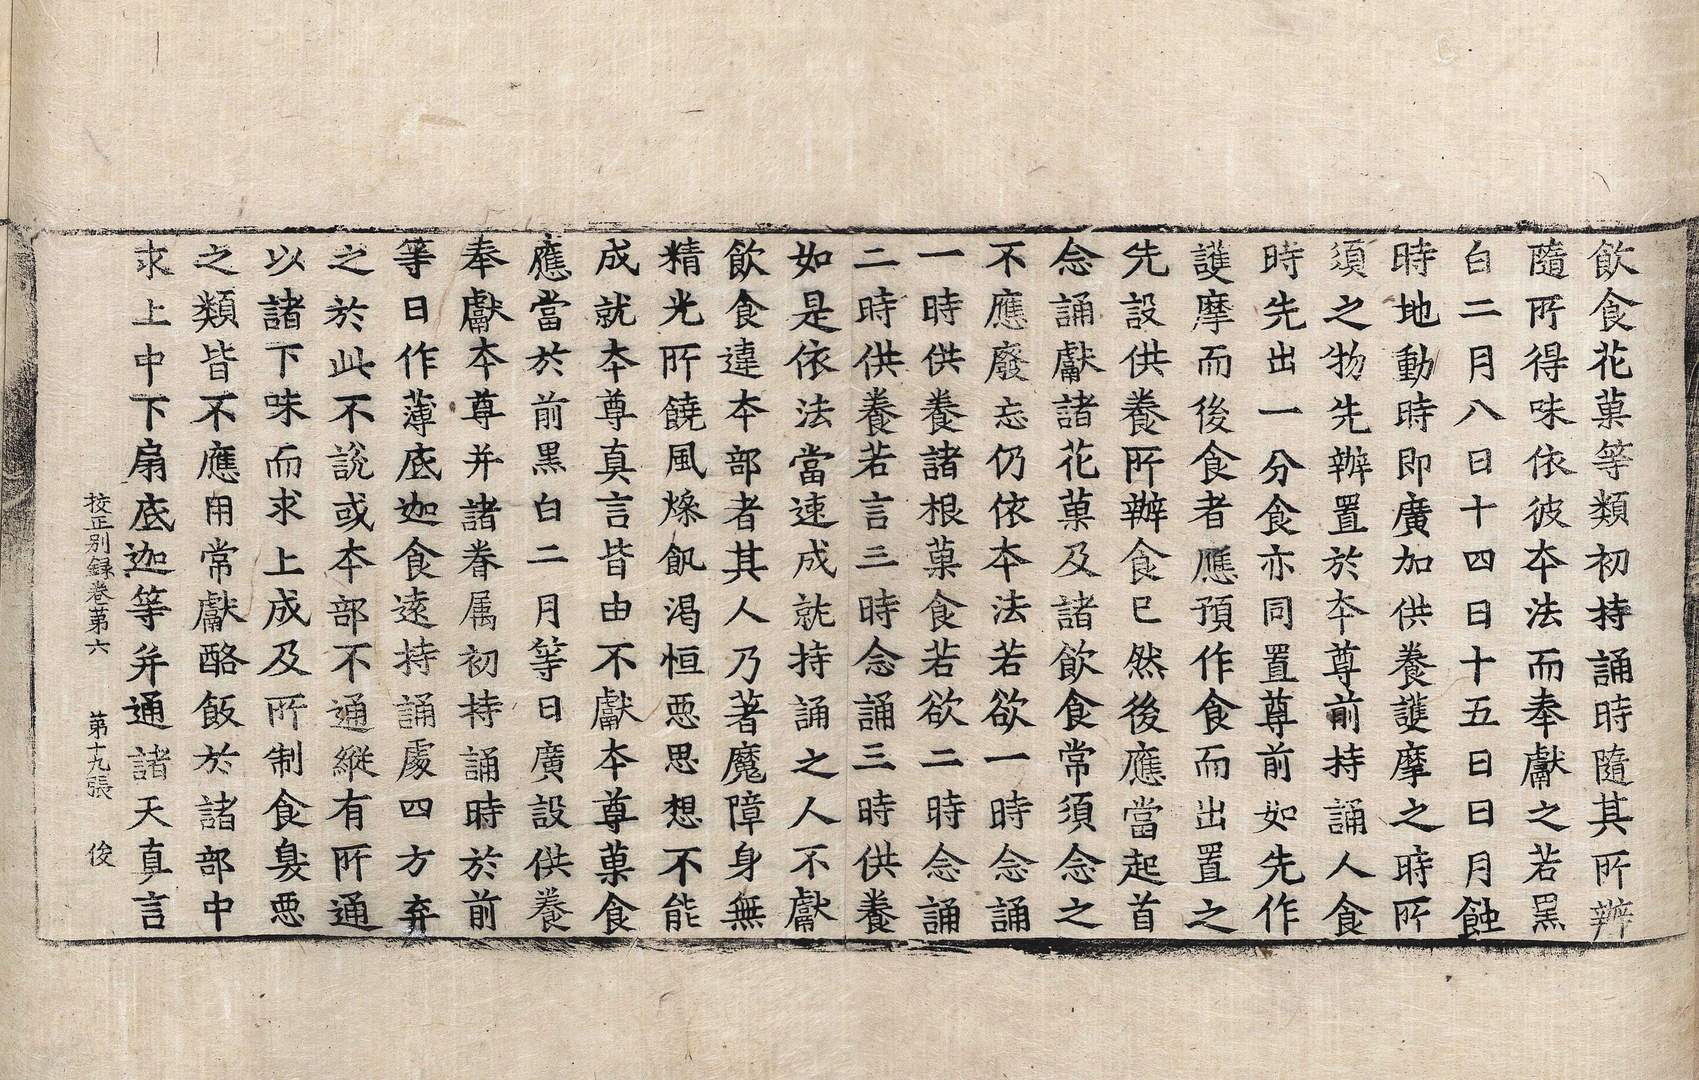 飲食花菓等類初持誦時隨其所辦
隨所得味依彼本法而奉獻之若黑
白二月八日十四日十五日日月蝕
時地動時即廣加供養護摩之時所
須之物先辦置於本尊前持誦人食
時先出一分食亦同置尊前如先作
護摩而後食者應預作食而出置之
先設供養所辦食已然後應當起首
念誦獻諸花菓及諸飲食常須念之
不應廢忘仍依本法若欲一時念誦
一時供養諸根菓食若欲二時念誦
二時供養若言三時念誦三時供養
如是依法當速成就持誦之人不獻
飲食違本部者其人乃著魔障身無
精光所饒風燥飢渴恒惡思想不能
成就本尊真言皆由不獻本尊菓食
應當於前黑白二月等日廣設供養
奉獻本尊并諸眷属初持誦時於前
等日作薄底迦食遠持誦處四方弃
之於此不說或本部不通縱有所通
以諸下味而求上成及所制食臭惡
之類皆不應用常獻酪飯於諸部中
求上中下扇底迦等并通諸天真言
校正別録卷第六 第十九張 俊